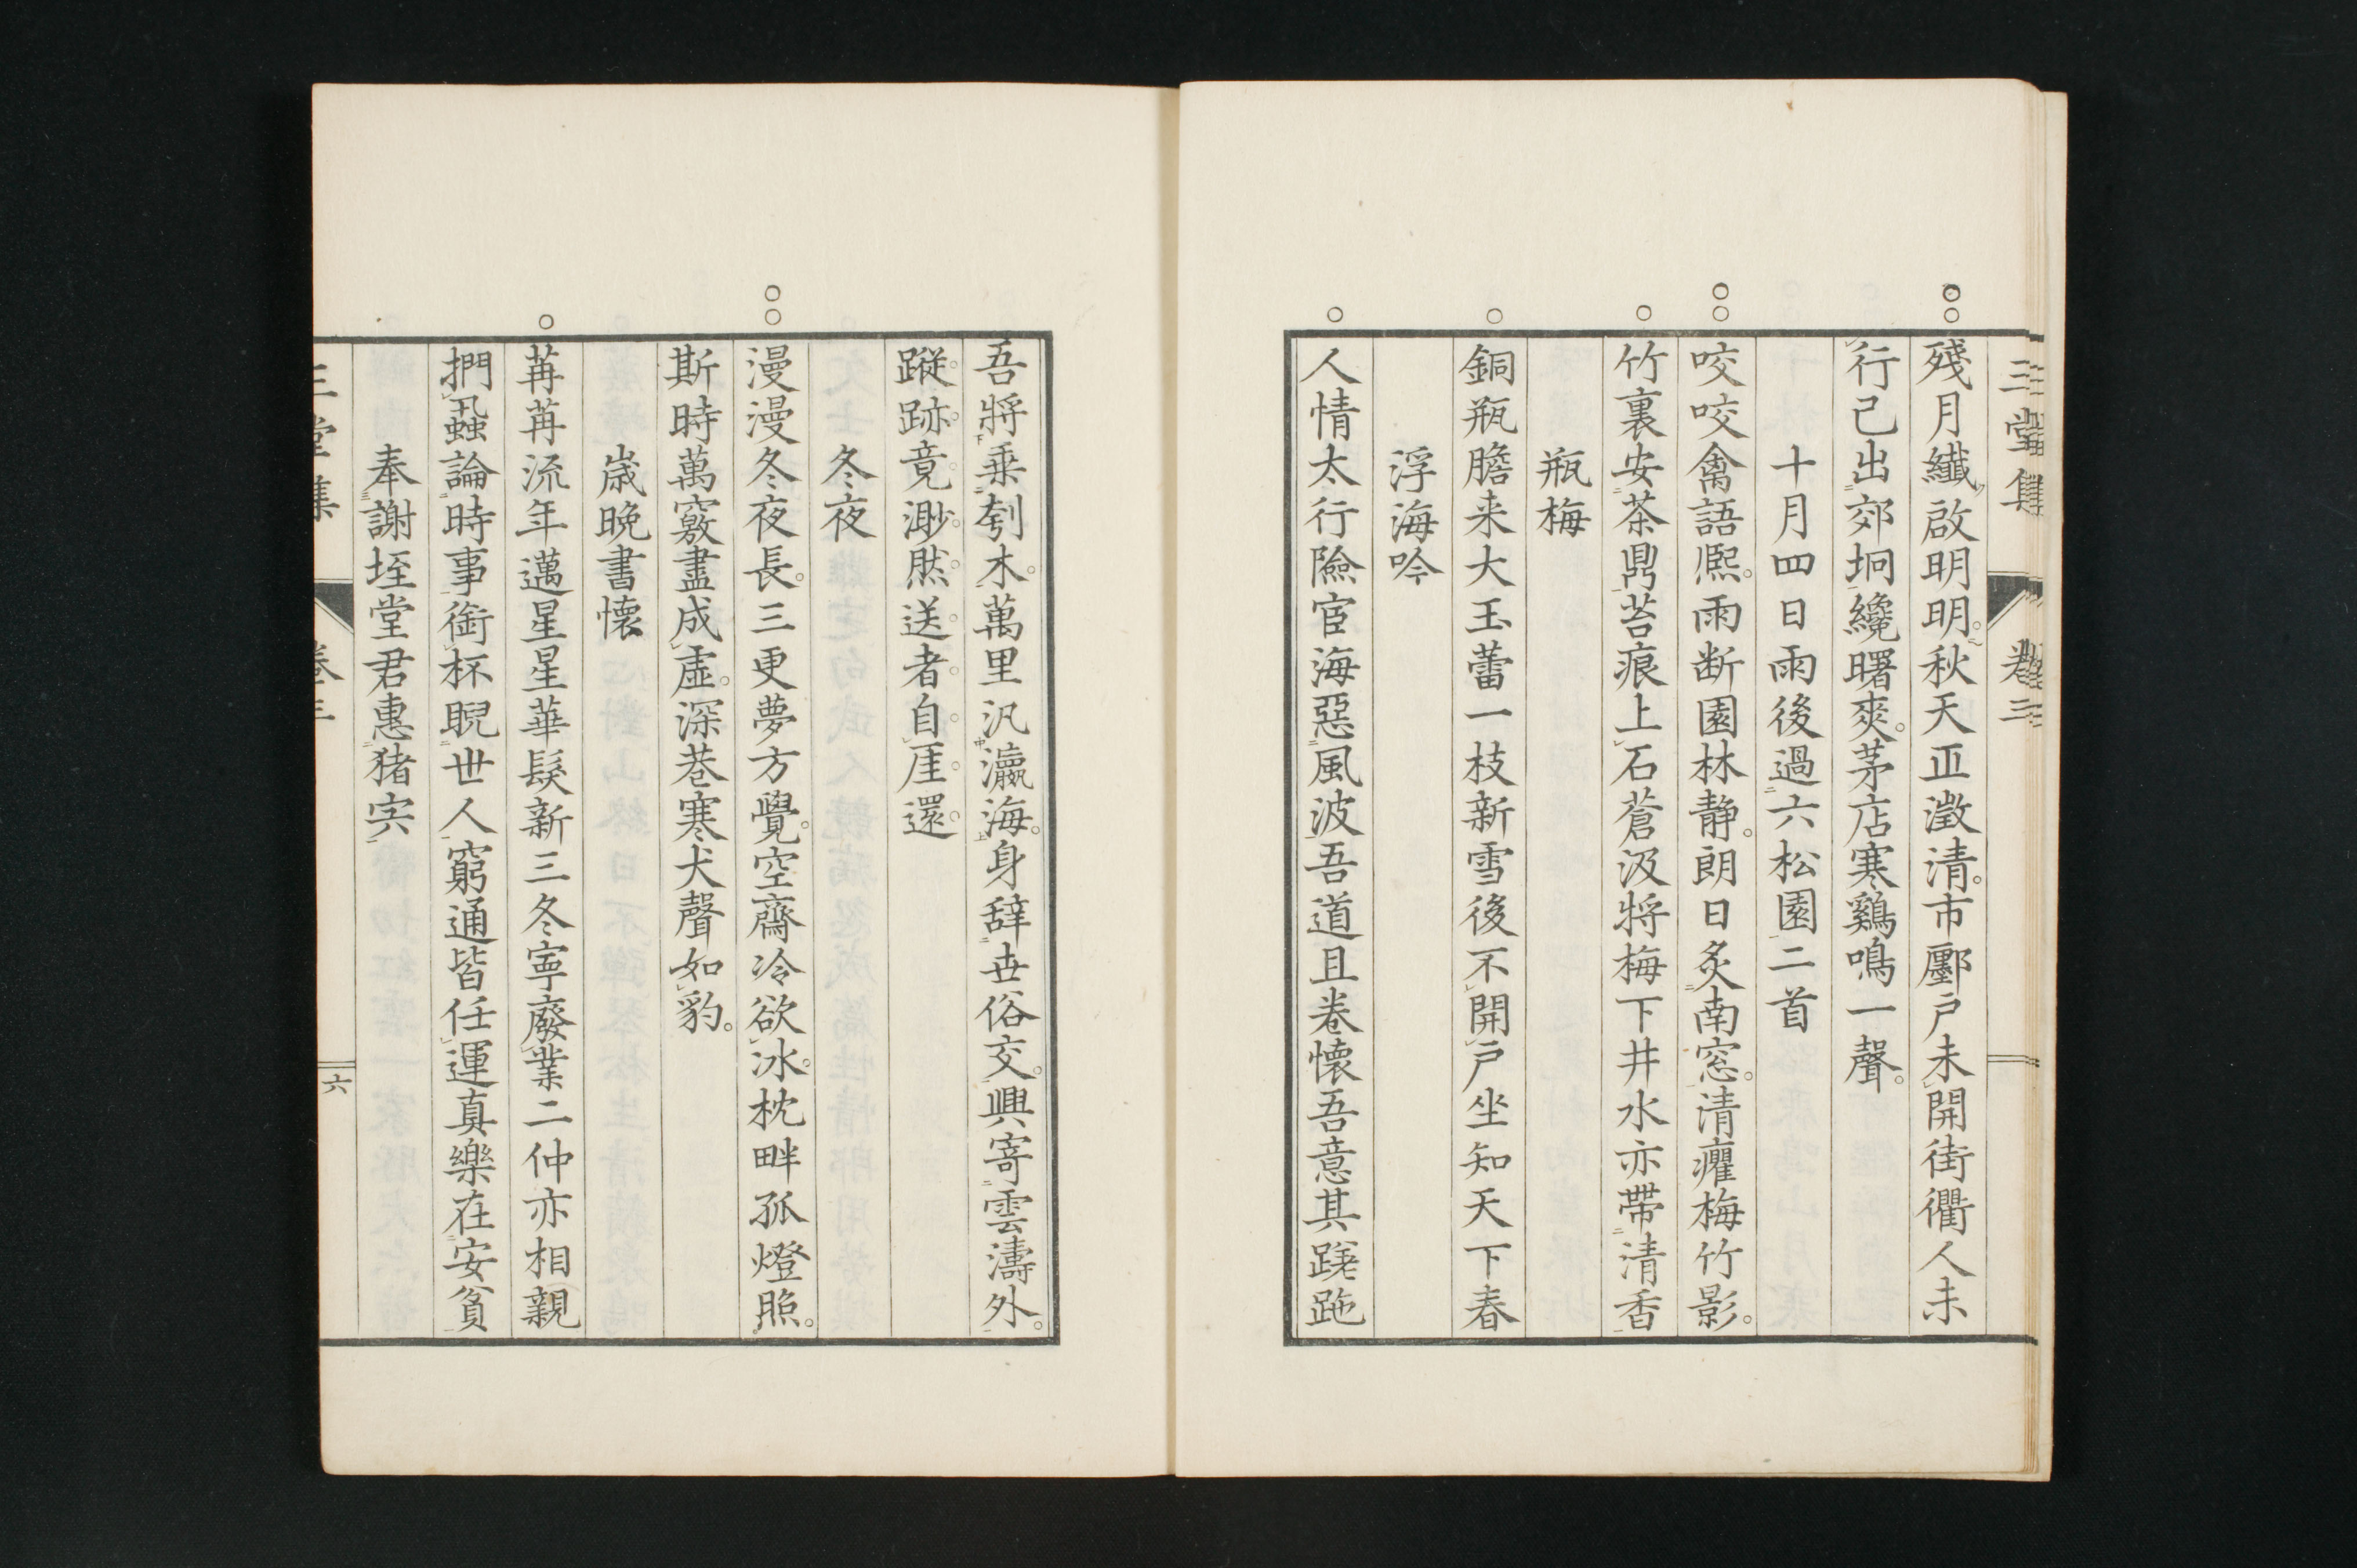 三堂集 卷三
殘月纖啟明明秋天正澂清市鄽戶未開街衢人未
行已出郊坰纔曙爽茅店寒鷄鳴一聲
十月四日雨後過六松園二首
咬咬禽語熈雨断園林静朗日炙南窓清癯梅竹影
竹裏安茶鼎苔痕上石蒼汲将梅下井水亦帶清香
瓶梅
銅瓶膽来大玉蕾一枝新雪後不開戶坐知天下春
浮海吟
人情太行險宦海惡風波吾道且卷懷吾意其蹉跎
吾將乗刳木萬里汎瀛海身辞世俗交興寄雲濤外
蹤跡竟渺然送者自厓還
冬夜
漫漫冬夜長三更夢方覺空齋冷欲冰枕畔孤燈照
斯時萬竅盡成虛深巷寒犬聲如豹
歳晚書懷
苒苒流年邁星星華髮新三冬寕廢業二仲亦相親
捫蝨論時事銜杯睨世人窮通皆任運真樂在安貧
奉謝垤堂君惠猪宍
三堂集 卷三 六